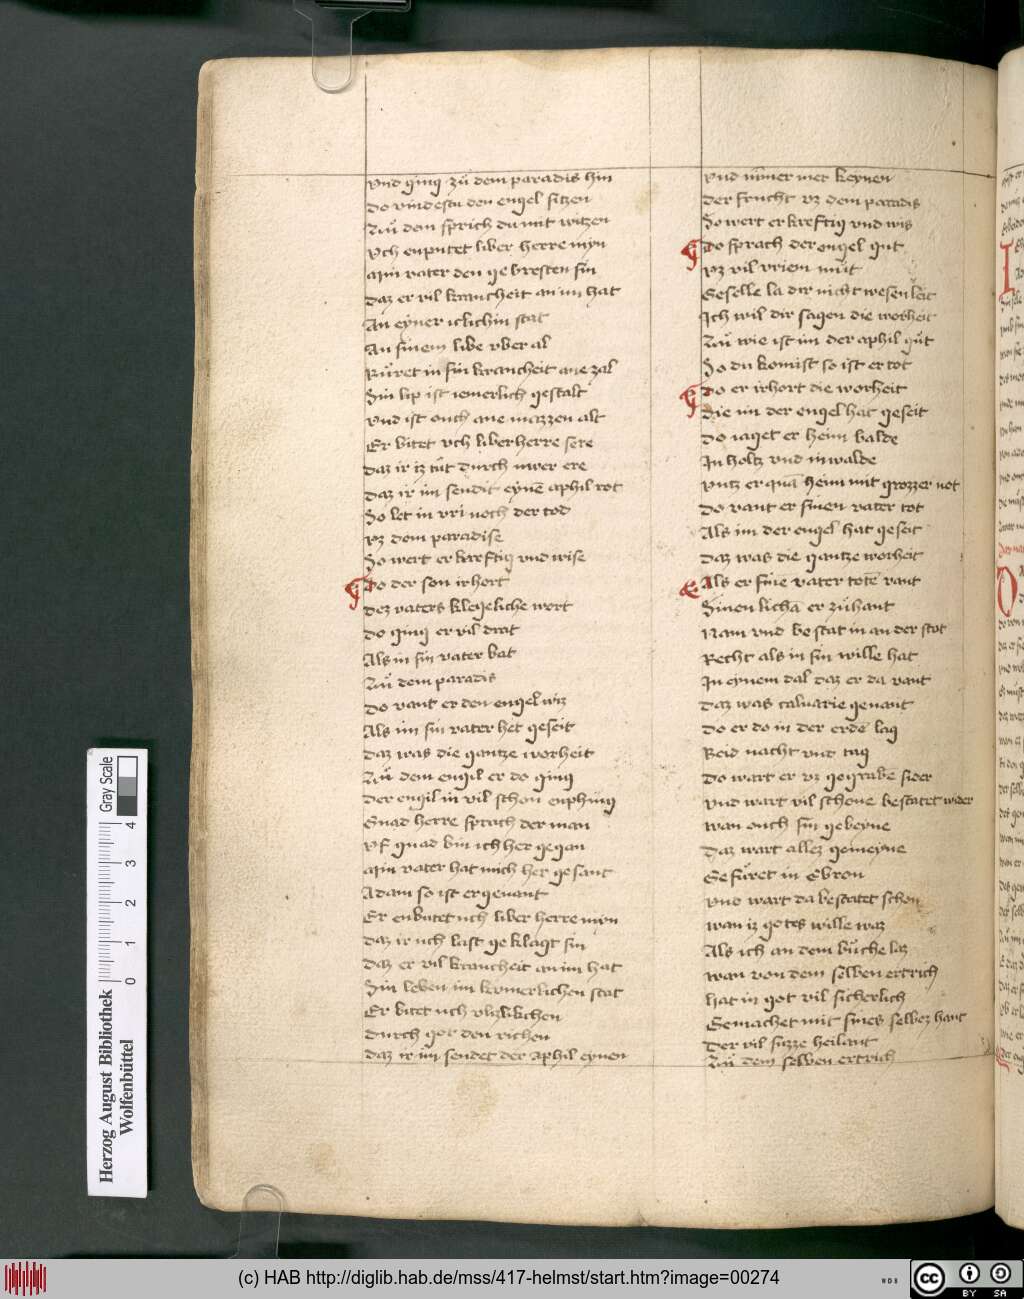 vnd ging zů dem paradis hin
do vindestu den engel sitzen
Zůͦ dem sprich du mit witzen
vch enputet liber herre myn
Myn vater den gebresten sin
daz er vil krancheit an im hat
An eyner iclichin stat
An sinem libe vber al
Růret in sin krancheit ane zal
Sin lip ist iemerlich gestalt
vnd ist ouch ane mazzen alt
Er bitet vch liber herre sere
daz ir iz tůt durch uwer ere
daz ir im sendit eynē aphil rot
So let in vri noch der tod
vz dem paradise
So wert er kreftig vnd wise
Do der son irhort
dez vaters klegeliche wort
do ging er vil drat
Als in sin vater bat
Zů dem paradis
do vant er den engel wiz
Als im sin vater het geseit
daz was die gantze worheit
Zů dem engil er do ging
der engil in vil schon enphing
Gnad herre sprach der man
vf gnad bin ich her gegan
Myn vater hat mich her gesant
Adam so ist er genant
Er enbutet uch liber herre myn
daz ir uch last geklagt sin
daz er vil krancheit an im hat
Sin leben im kvmerlichen stat
Er bitet uch vlizlikchen
durch got den richen
daz ir im sendet der aphil eynen
vnd nimer mer keynen
der frucht vz dem paradis
So wert er kreftig vnd wis
Do sprach der engel gut
vz vil vriem můt
Geselle la dir nicht wesen leit
Ich wil dir sagen die worheit
Zů wie ist im der aphil gůt
So du komist so ist er tot
Do er irhort die worheit
die im der engel hat geseit
do iaget er heim balde
In holtz vnd in walde
vntz er quā heim mit grozzer not
do vant er sinen vater tot
Als im der engel hat geseit
daz was die gantze worheit
Als er sine vater totē vant
Sinen lichā er zůhant
Nam vnd bestat in an der stat
Recht als in sin wille hat
In eynem dal daz er da vant
daz was caluarie genant
do er do in der erde lag
Beid nacht vnd tag
do wart er vz gegrabe sider
vnd wart vil schone bestatet wider
wan ouch sin gebeyne
daz wart allez gemeyne
Gefůret in Ebron
vnd wart da bestatet schon
wan iz gotes wille waz
Als ich an dem bůche laz
wan von dem selben ertrich
hat in got vil sicherlich
Gemachet mit sines selbez hant
der vil suzze heilant
Zů dem selben ertrich
Herzog August Bibliothek
Wolfenbüttel
Gray Scale
0 1 2 3 4
(c) HAB http://diglib.hab.de/mss/417-helmst/start.htm?image=00274
WDB
cc BY SA